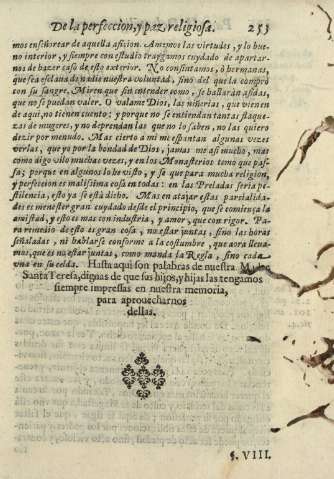 De la perfeccion, y paz religiosa. 253
mos enseñorear de aquella aficion. Amemos las virtudes, y lo bueno
interior, y siempre con estudio traygamos cuydado de apartarnos
de hazer caso de esto exterior. No consintamos, ô hermanas,
que sea esclaua de nadie nuestra voluntad, sino del que la comprò
con su sangre. Miren que sin entender como, se hallaràn assidas,
que no se puedan valer. O valame Dios, las niñerias, que vienen
de aqui, no tienen cuento; y porque no se entiendan tantas flaquezas
de mugeres, y no deprendan las que no lo saben, no las quiero
dezir por menudo. Mas cierto a mi me espantan algunas vezes
verlas, que yo por la bondad de Dios, jamas me asi mucho, mas
como digo vilo muchas vezes, y en los Monasterios temo que passa;
porque en algunos lo he visto, y se que para mucha religion,
y perfeccion es malissima cosa en todas: en las Preladas seria pestilencia,
esto ya se està dicho. Mas en atajar estas parcialidades
es menester gran cuydado desde el principio, que se comiença la
amistad, y esto es mas con industria, y amor, que con rigor. Para
remedio de esto es gran cosa, no estar juntas, sino las horas
señaladas, ni hablarse conforme a la costumbre, que aora lleuamos,
que es no estar juntas, como manda la Regla, sino cada
vna en su celda. Hasta aqui son palabras de nuestra Madre
Santa Teresa, dignas de que sus hijos, y hijas las tengamos
siempre impressas en nuestra memoria,
para aprouecharnos
dellas.
§. VIII.